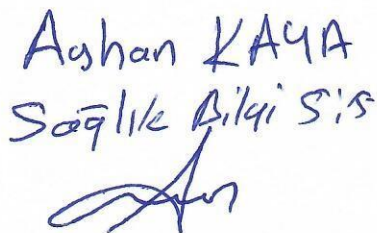 Ayhan KAYA
Sağlık Bilgi Sis